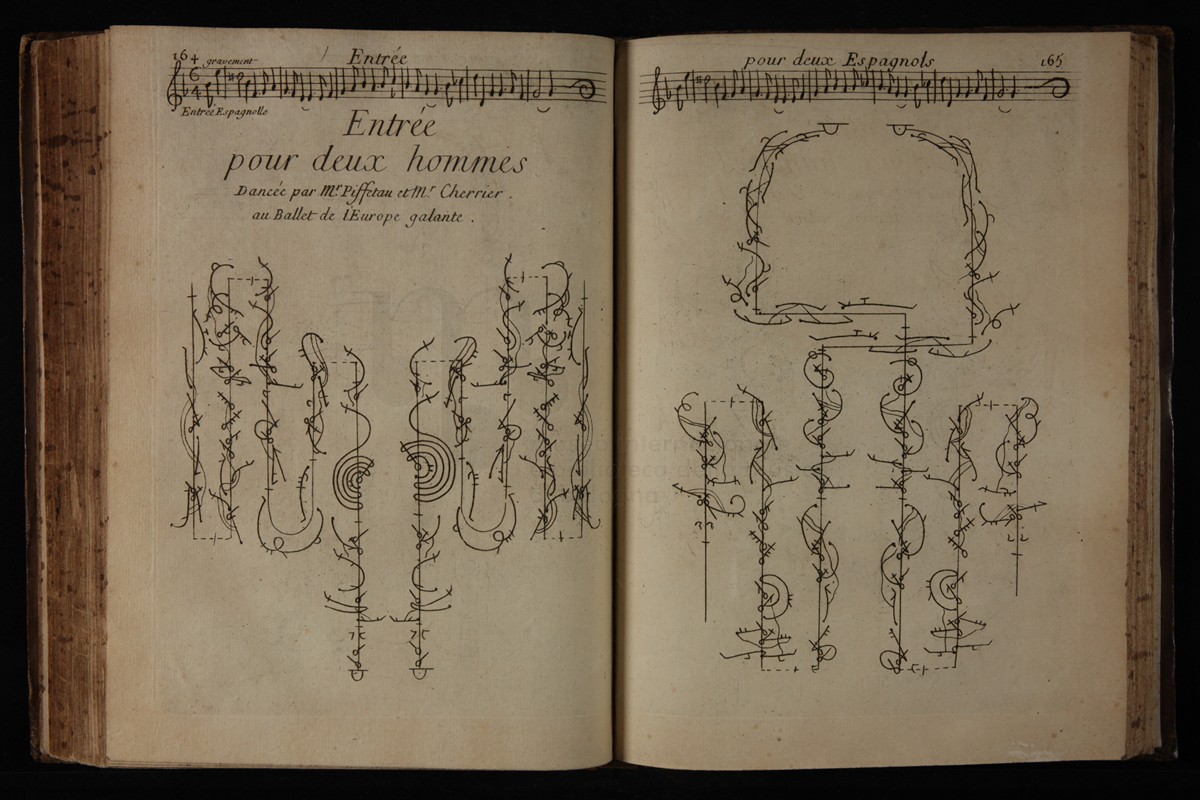 164
Entrée
gravement
6
4
Entrée Espagnolle
Entrée
pour deux hommes
Dancée par Mr. Piffetau et Mr. Cherrier.
au Ballet de l'Europe galante.
pour deux Espagnols
165